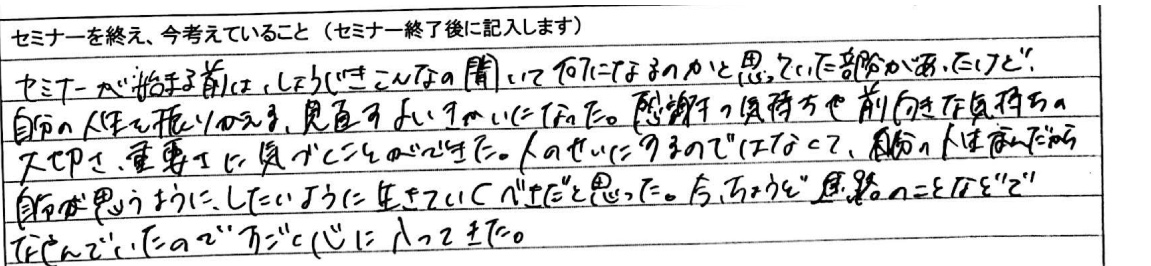 セミナーを終え、今考えていること（セミナー終了後に記入します）
セミナーが始まる前は、しょうじきこんなの聞いて何になるのかと思っていた部分があったけど、
自分の人生を振りかえる、見直すよいきかいになった。感謝する気持ちや前向きな気持ちの
大切さ、重要さに気づくことができた。人のせいにするのではなくて、自分の人生なんだから
自分が思うように、したいように生きていくべきだと思った。今、ちょうど進路のことなどで
なやんでいたのですごく心に入ってきた。